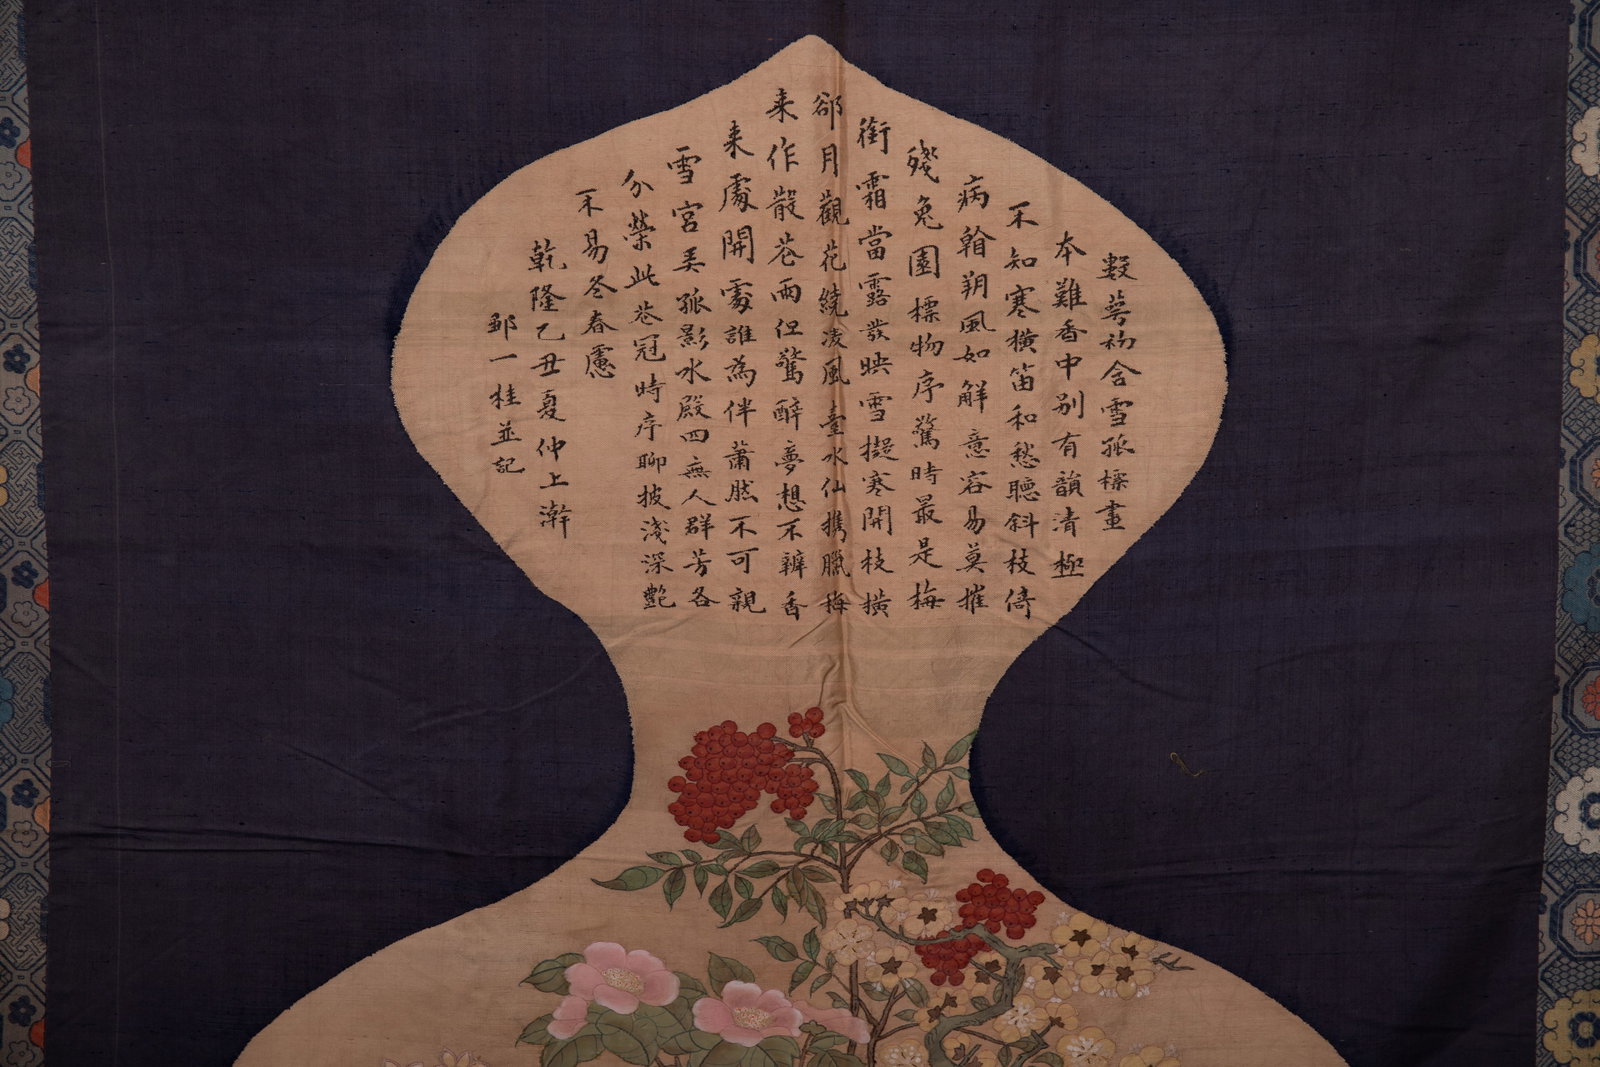 數萼初含雪孤標畫
本難香中別有韻清極
不知寒橫笛和愁聽斜枝倚
病翰朔風如解意容易莫摧
殘兔園標物序驚時最是梅
銜霜當露發映雪擬寒開枝橫
郤月觀花繞凌風臺水仙攜臘梅
来作散花雨但驚醉夢想不辨香
来處開處誰為伴蕭然不可親
雪宮孤影水殿四無人群芳各
分榮此花冠時序聊披淺深艷
不易冬春慮
乾隆乙丑夏仲上澣
鄒一桂並記